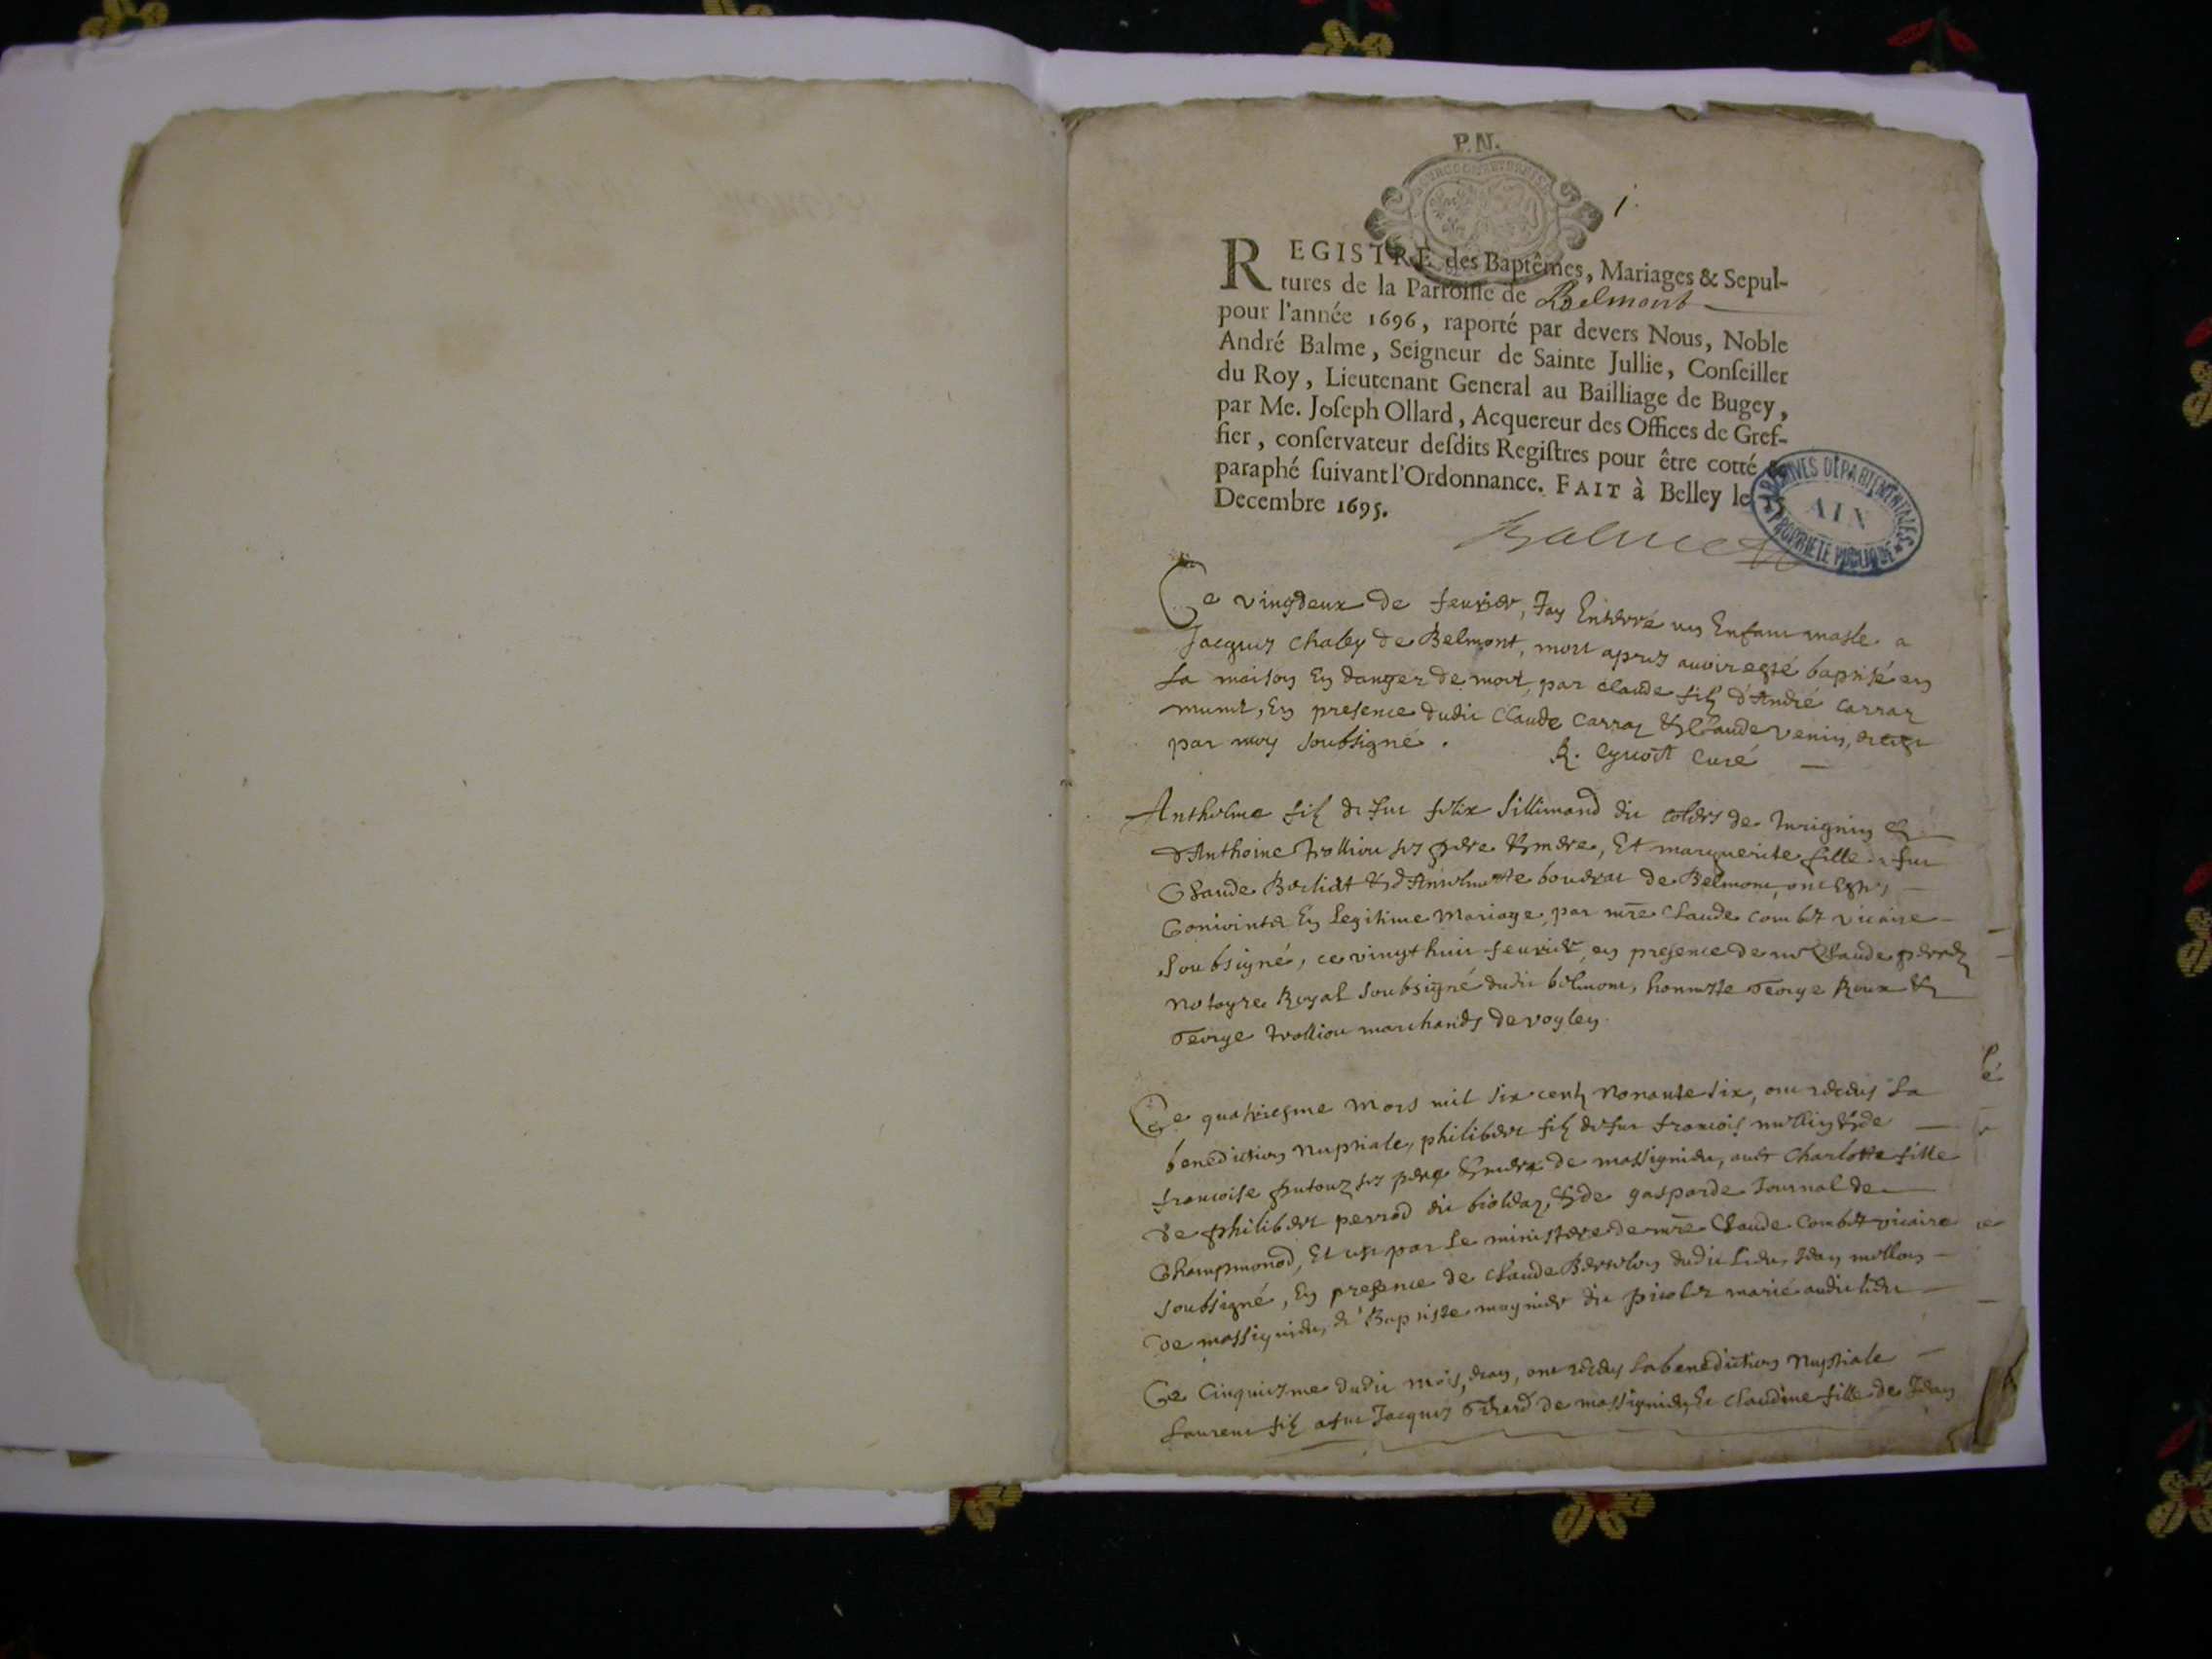 P. N.
1.
REGISTRE des Baptêmes, Mariages & Sepul-
tures de la Parroisse de Belmont
pour l'année 1696, raporté par devers Nous, Noble
André Balme, Seigneur de Sainte Jullie, Conseiller
du Roy, Lieutenant General au Bailliage de Bugey,
par Me. Joseph Ollard, Acquereur des Offices de Gref-
fier, conservateur desdits Registres pour être cotté &
paraphé suivant l'Ordonnance. FAIT à Belley le
Decembre 1695.
Balme
ARCHIVES DÉPARTEMENTALES
AIN
PROPRIÉTÉ PUBLIQUE
Ce vingdeux de feurier, Jay Enterré un Enfant masle a
Jacques chaley de Belmont, mort apres auoir esté baptisé en
La maison En danger de mort, par Claude filz d'André Carraz
En presence dudit Claude Carraz & Claude Venin,
par moy soubsigné. Curé
Anthelme filz de feu felix Sillimand dit de &
d'Anthoine Trolliou ses pere & mere, Et marguerite fille a feu
Claude & d'Anselmette de Belmont, ont Esté
Conioints En Legitime Mariage, par mre Claude Combet vicaire
soubsigné, ce vingt huit feurier, en presence de mr Claude
notayre Royal soubsigné dudit belmont, honneste George Roux &
George Trolliou marchands de vogley
Ce quatriesme Mars mil six centz nonante six, ont receus La
benediction nuptiale, philibert filz de feu francois & de
francoise ses pere & mere de massignieu, auec Charlotte fille
de philibert perrod dit & de gasparde Journal de
Champmonod, Et ce par Le ministere de mre Claude Combet vicaire
soubsigné, En presence de Claude dudit Lieu, Jean
De massignieu, & Baptiste dit marié audit lieu
Ce Cinquiesme dudit mois, & an, ont receus La benediction Nuptiale
Laurent filz a feu Jacques de massignieu, & Claudine fille de Jean